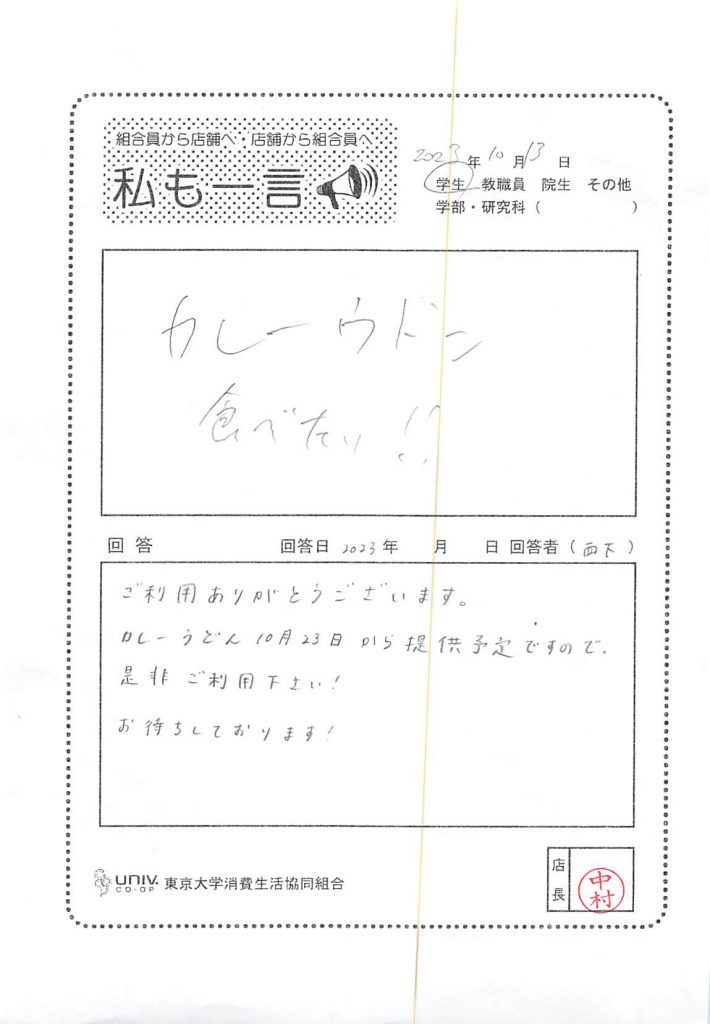 組合員から店舗へ・店舗から組合員へ
私も一言
2023年10月13日
学生 教職員 院生 その他
学部・研究科（　　　　）
カレーウドン
食べたい!!
回答 回答日 2023年 月 日 回答者（西下）
ご利用ありがとうございます。
カレーうどん10月23日から提供予定ですので、
是非ご利用下さい!
お待ちしております!
UNIV. CO-OP 東京大学消費生活協同組合
店長 中村